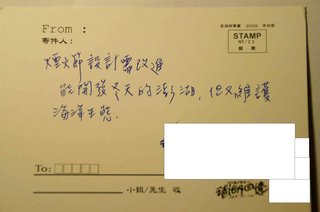 From :
寄件人：
STAMP
NT/3.3
郵 票
煙火節設計需改進
能開發冬天的澎湖，但又維護
海洋生態.
To:
小姐/先生 收